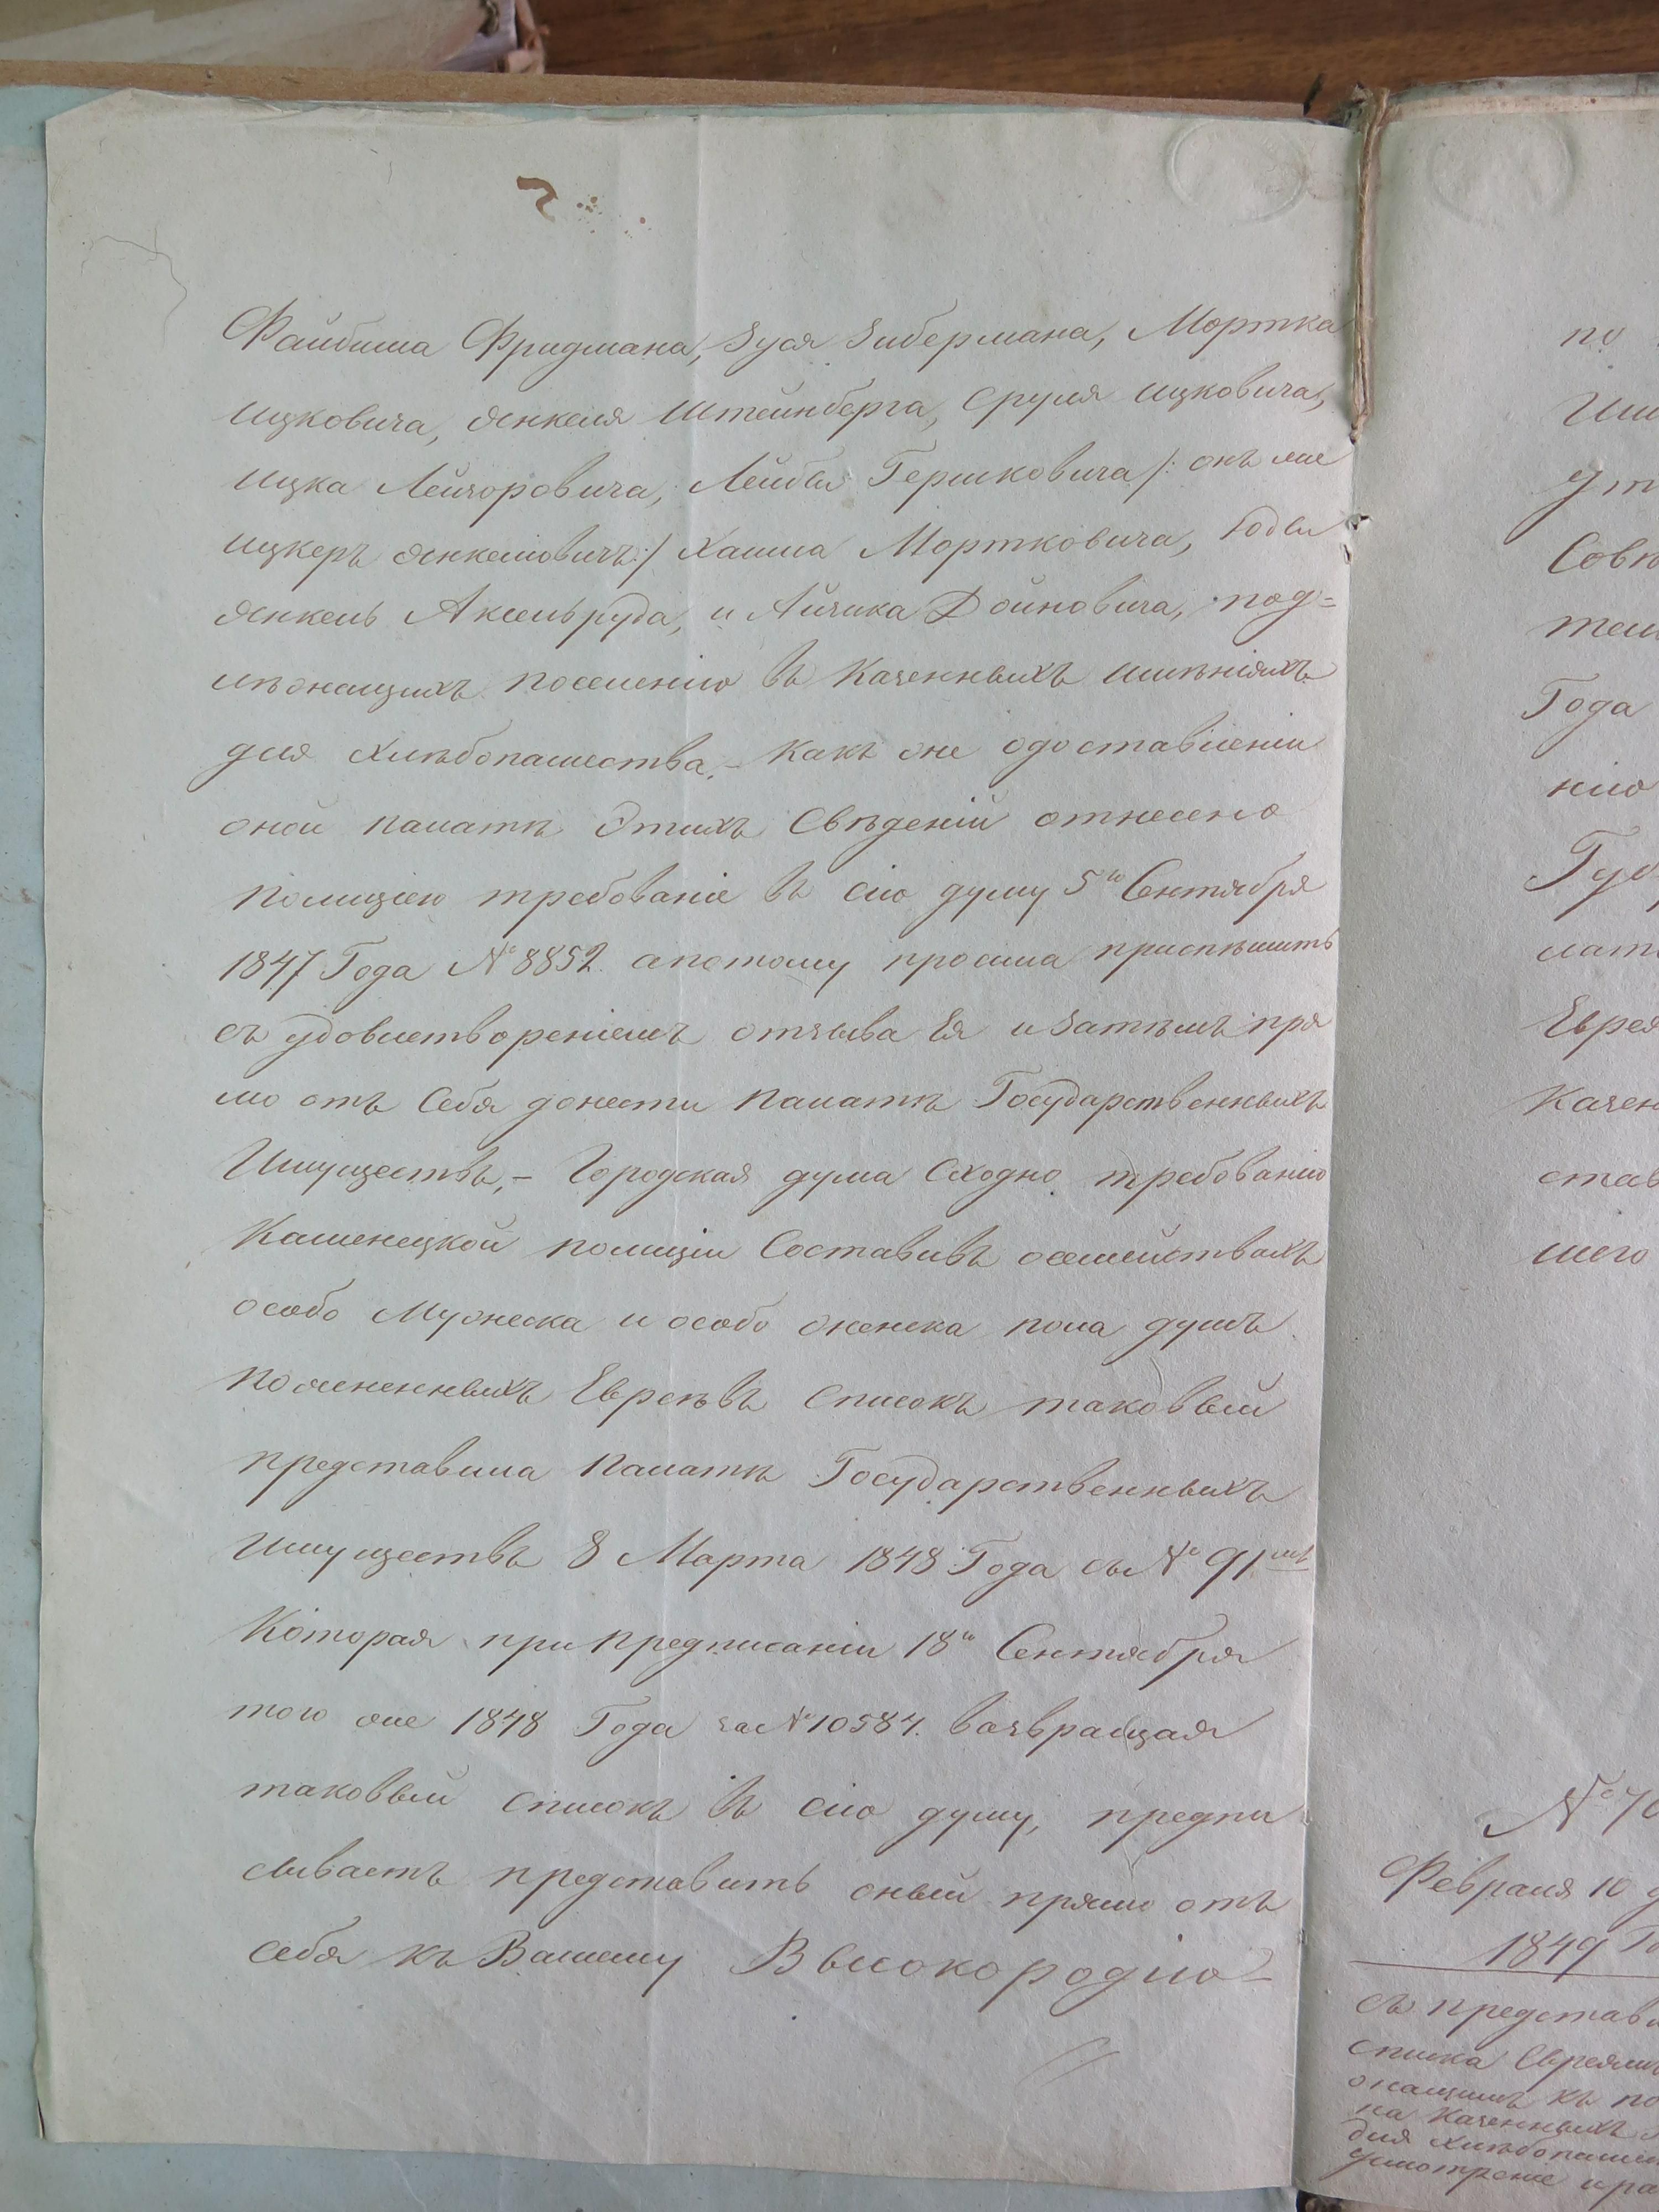 Файбиша Фридмана, Зуся Зибермана, Мортка
Ицковича, Янкеля Штейнберга, Сруля Ицковича,
Ицка Лейзоровича, Лейбы Гершковича /: онъ же
Ицкеръ Янкелiовичъ :/ Хаима Мортковича, Юды
Янкель Аксельруда, и Айзика Дойновича, под=
лѣжащихъ поселенiю въ казенныхъ имѣнiяхъ
для хлѣбопашества. – Какъ же одоставленiи
оной палатѣ этихъ свѣденiй отнесено
полицiею требованiе въ сiю думу 5го Сентября
1847 Года №8852. апотому просила приспѣшить
съ удовлетворенiемъ отзыва Ея и затѣмъ пря
мо отъ себя донести палатѣ Государственныхъ
Имуществъ, – Городская дума сходно требованiю
Каменецкой полицiи составивъ осемействахъ
особо Мужеска и особо женска пола душъ
помененныхъ Евреевъ списокъ таковый
представила палатѣ Государственныхъ
имуществъ 8 Марта 1848 Года съ № 91мъ
Которая при предписанiи 18го Сентября
того же 1848 Года за №10584. возвращая
таковый списокъ въ сiю думу, предпи
сываетъ представить оный прямо отъ
себя къ Вашему Высокородiю –
по
Им
Совѣ
Года
нiю
Евре
Казен
став
шего
№ 70
Февраля 10 д
1849 Го
съ представ
списка Евреямъ
жащимъ къ по
на казенныхъ
для хлѣбопаше
усмотренiе и ра